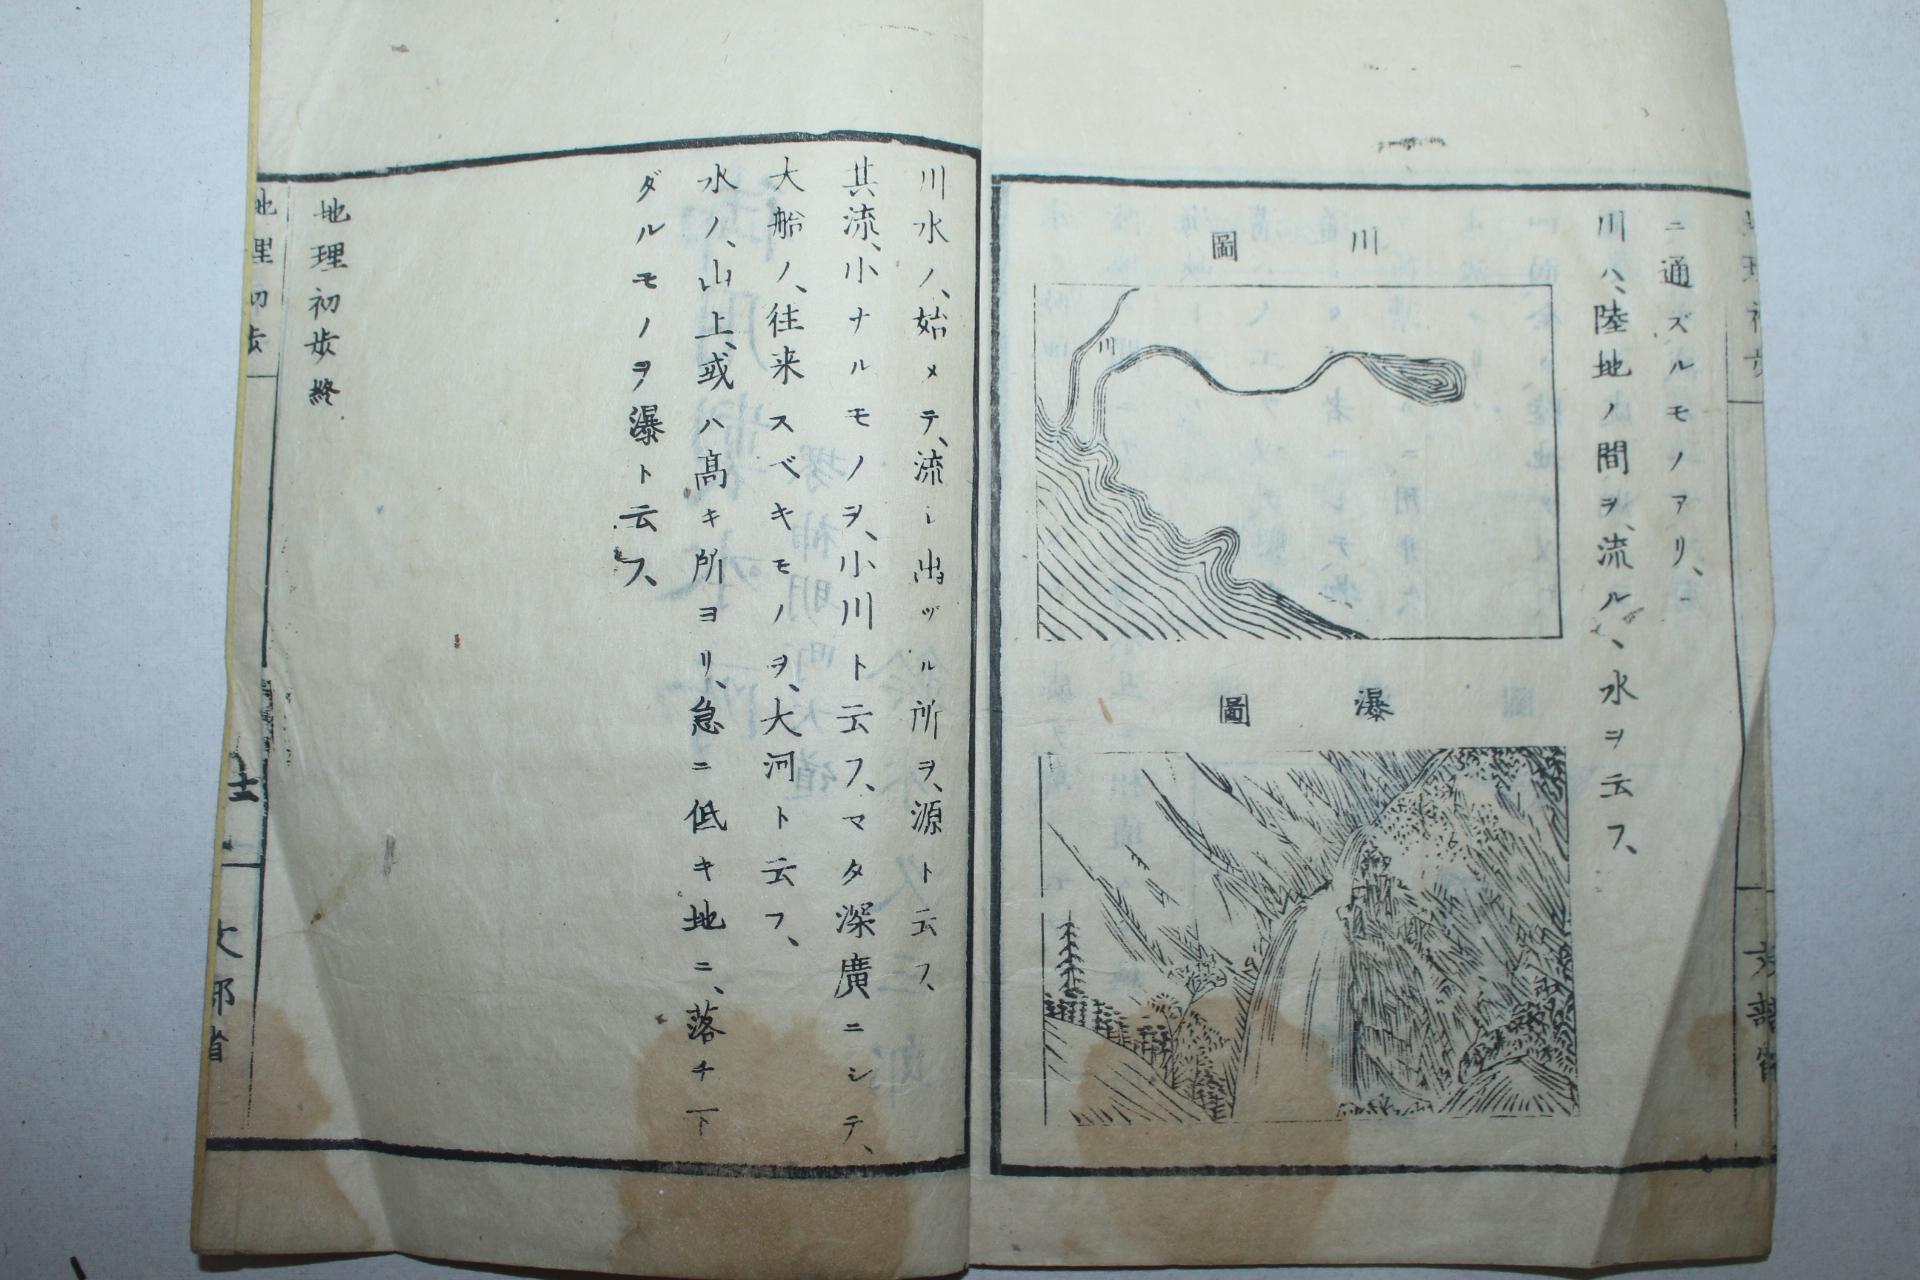 ニ通ズルモノアリ、
川ハ、陸地ノ間ヲ、流ル、水ヲ云フ、
川圖
川
瀑圖
川水ノ、始メテ、流レ出ヅル所ヲ、源ト云フ、
其流、小ナルモノヲ、小川ト云フ、マタ深廣ニシテ、
大船ノ、往来スベキモノヲ、大河ト云フ、
水ノ、山上、或ハ高キ所ヨリ、急ニ低キ地ニ、落チ下
ダルモノヲ、瀑ト云フ、
地理初歩終
地理初歩
文部省